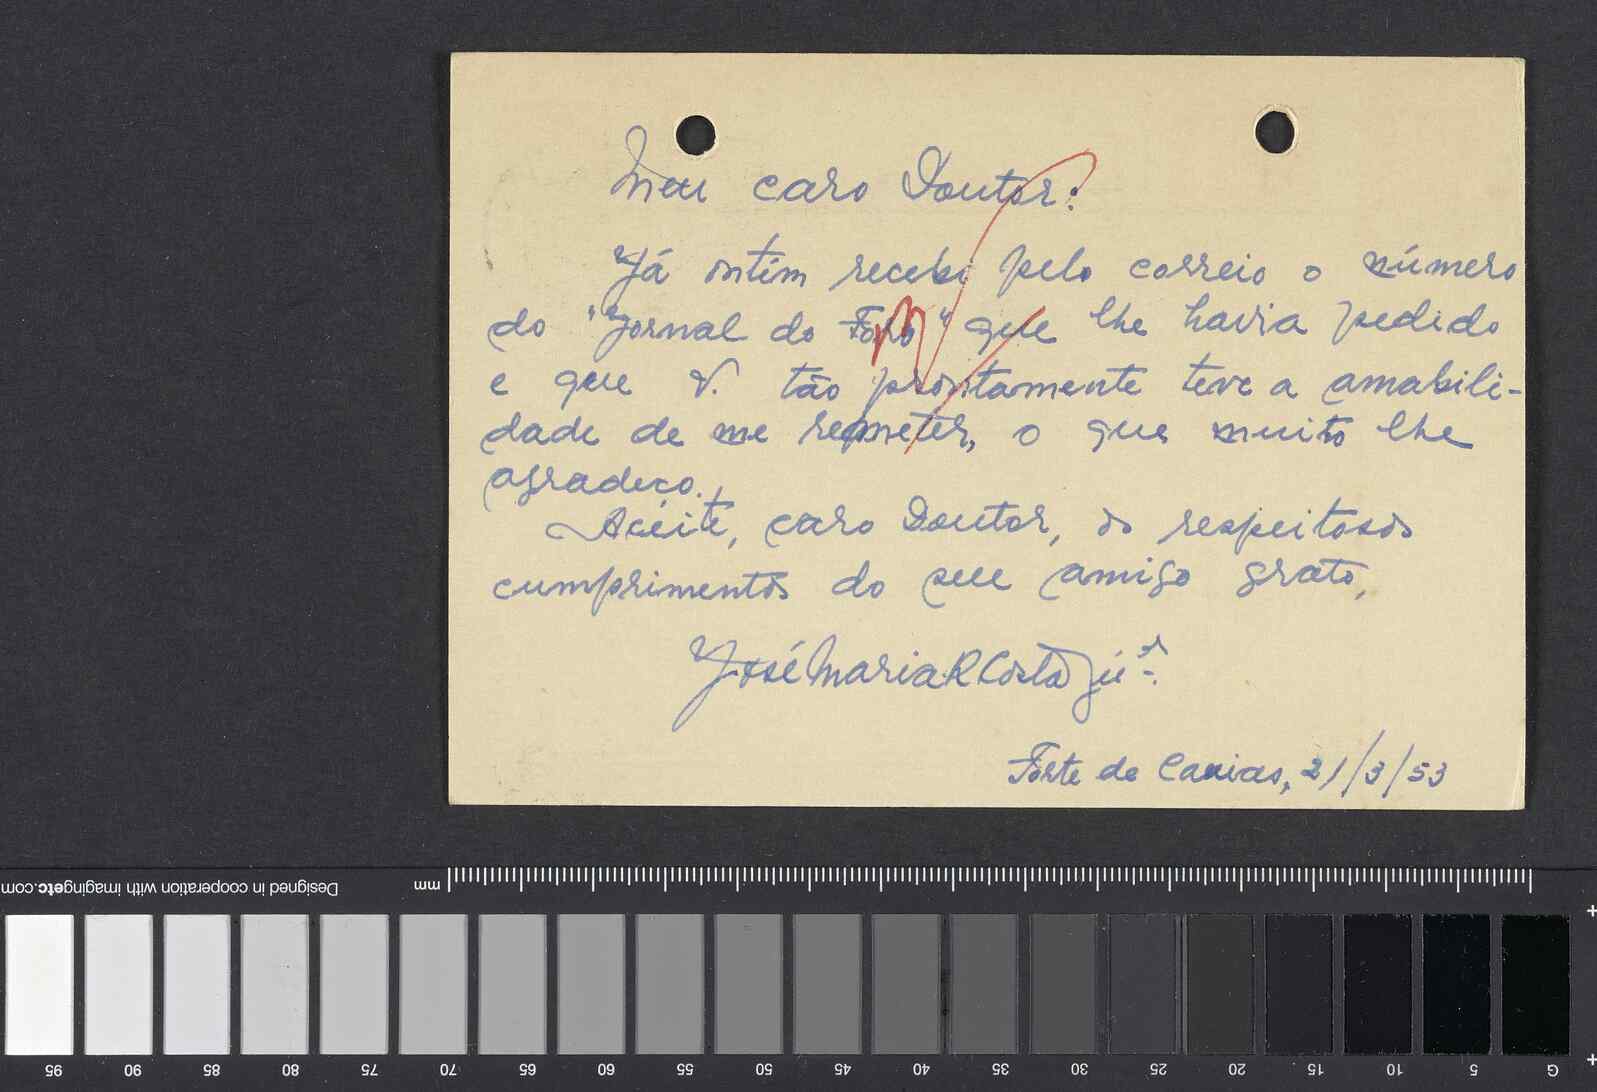 Meu caro Doutor:
Já ontem recebi pelo correio o número
do "Jornal do Foro" que lhe havia pedido
e que V. tão prontamente teve a amabili-
dade de me remeter, o que muito lhe
agradeço.
Aceite, caro Doutor, os respeitosos
cumprimentos do seu amigo grato,
José Maria R Costa Jú.or
Forte de Caxias, 21/3/53
mm
Designed in cooperation with imagingetc.com
95 90 85 80 75 70 65 60 55 50 45 40 35 30 25 20 15 10 5 G